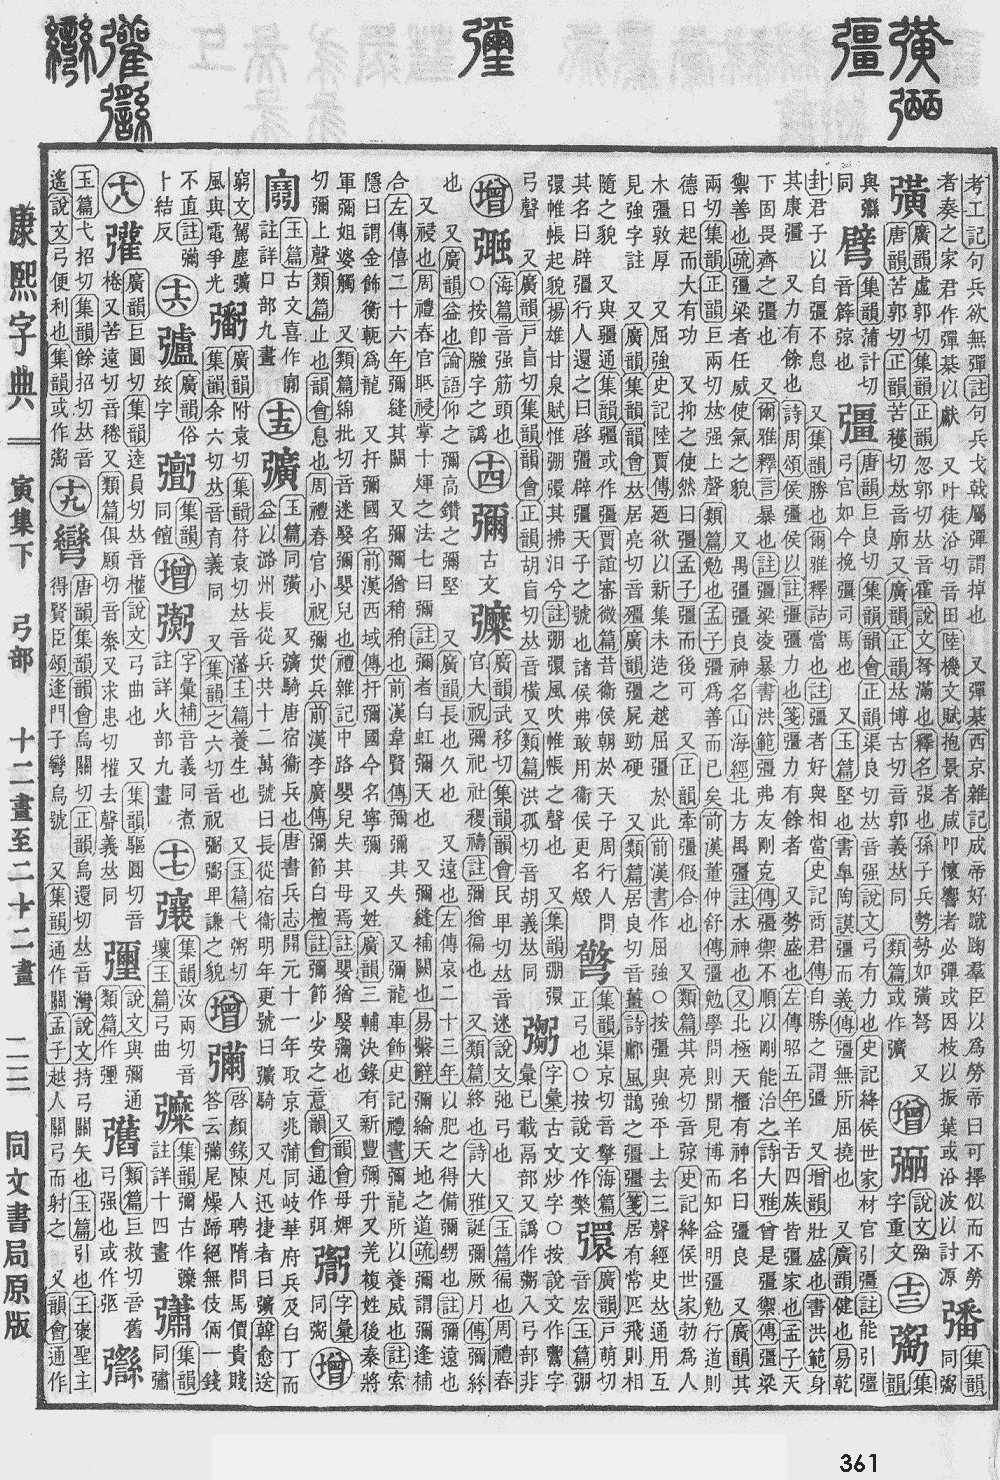 考工記句兵欲無彈註句兵戈戟屬彈謂掉也 又彈棊西京雜記成帝好蹴踘羣臣以爲勞帝曰可擇似而不勞
者奏之家君作彈棊以獻 又叶徒沿切音田陸機文賦抱景者咸叩懷響者必彈或因枝以振葉或沿波以討源
彉
廣韻虛郭切集韻正韻忽郭切𠀤音霍說文弩滿也釋名張也孫子兵勢勢如彉弩 又
唐韻苦郭切正韻苦穫切𠀤音廓 又廣韻正韻𠀤博古切音郭義𠀤同 類篇或作彍
增
十三
集韻蒲計切
音薜弶也
彊
唐韻巨良切集韻韻會正韻渠良切𠀤音强說文弓有力也史記絳侯世家材官引彊註能引彊
弓官如今挽彊司馬也 又玉篇堅也書臯陶謨彊而義傳彊無所屈撓也 又廣韻健也易乾
卦君子以自彊不息 又集韻勝也爾雅釋詁當也註彊者好與相當史記商君傳自勝之謂彊 又增韻壯盛也書洪範身
其康彊 又力有餘也詩周頌侯彊侯以註彊彊力也箋彊力有餘者 又勢盛也左傳昭五年羊舌四族皆彊家也孟子天
下固畏齊之彊也 又爾雅釋言暴也註彊梁凌暴書洪範彊弗友剛克傳彊禦不順以剛能治之詩大雅曾是彊禦傳彊梁
禦善也疏彊梁者任威使氣之貌 又禺彊彊良神名山海經北方禺彊註水神也又北極天櫃有神名曰彊良 又廣韻其
兩切集韻正韻巨兩切𠀤强上聲類篇勉也孟子彊爲善而已矣前漢董仲舒傳彊勉學問則聞見博而知益明彊勉行道則
德日起而大有功 又抑之使然曰彊孟子彊而後可 又正韻牽彊假合也 又類篇其亮切音弶史記絳侯世家勃爲人
木彊敦厚 又屈強史記陸賈傳廼欲以新集未造之越屈彊於此前漢書作屈強○按彊與強平上去三聲經史𠀤通用互
見強字註 又廣韻集韻韻會𠀤居亮切音殭廣韻彊屍勁硬 又類篇居良切音薑詩鄘風鵲之彊彊箋居有常匹飛則相
隨之貌 又與疆通集韻疆或作彊賈誼審微篇昔衞侯朝於天子周行人問
其名曰辟彊行人還之曰啓彊辟彊天子之號也諸侯弗敢用衞侯更名燬
集韻渠京切音擎海篇
正弓也○按說文作檠
彋
廣韻戸萌切
音宏玉篇弸
彋帷帳起貌揚雄甘泉賦惟弸彋其拂汨兮註弸彋風吹帷帳之聲也 又集韻弸彋
弓聲 又廣韻戸盲切集韻韻會正韻胡盲切𠀤音橫又類篇洪孤切音胡義𠀤同
增
海篇音强筋頭也
○按卽䐃字之譌
十四
彌
古文
廣韻武移切集韻韻會民卑切𠀤音迷說文弛弓也 又玉篇徧也周禮春
官大祝彌祀社稷禱註彌猶徧也 又類篇終也詩大雅誕彌厥月傳彌終
也 又廣韻益也論語仰之彌高鑽之彌堅 又廣韻長也久也 又遠也左傳哀二十三年以肥之得備彌甥也註彌遠也
又祲也周禮春官眂祲掌十煇之法七曰彌註彌者白虹彌天也 又彌縫補闕也易繫辭彌綸天地之道疏彌謂彌縫補
合左傳僖二十六年彌縫其闕 又彌彌猶稍稍也前漢韋賢傳彌彌其失 又彌龍車飾史記禮書彌龍所以養威也註索
隱曰謂金飾衡軛爲龍 又扞彌國名前漢西域傳扞彌國今名寧彌 又姓廣韻三輔決錄有新豐彌升又羌複姓後秦將
軍彌姐婆觸 又類篇綿批切音迷嫛彌嬰兒也禮雜記中路嬰兒失其母焉註嬰猶嫛彌也 又韻會母婢
切彌上聲類篇止也韻會息也周禮春官小祝彌烖兵前漢李廣傳彌節白檀註彌節少安之意韻會通作弭
字彙
同弼
增
玉篇古文喜作
註詳口部九畫
十五
彍
玉篇同彉 又彍騎唐宿衞兵也唐書兵志開元十一年取京兆蒲同岐華府兵及白丁而
益以潞州長從兵共十二萬號曰長從宿衞明年更號曰彍騎 又凡迅捷者曰彍韓愈送
窮文駕塵彍
風與電爭光
廣韻附袁切集韻符袁切𠀤音藩玉篇養生也 又玉篇弋粥切
集韻余六切𠀤音育義同 又集韻之六切音祝粥粥卑謙之貌
增
啓顏錄陳人聘隋問馬價貴賤
答云彌尾燥蹄絕無伎倆一錢
不直註彌
卜結反
十六
廣韻俗
玈字
集韻
同饘
增
字彙補音義同煮
註詳火部九畫
十七
集韻汝兩切音
壤玉篇弓曲
集韻彌古作
註詳十四畫
集韻
同彇
十八
彏
廣韻巨圓切集韻逵員切𠀤音權說文弓曲也 又集韻驅圓切音
棬又苦遠切音綣又類篇俱願切音絭又求患切權去聲義𠀤同
說文與彌通
類篇作彊
類篇巨救切音舊
弓强也或作
玉篇弋招切集韻餘招切𠀤音
遙說文弓便利也集韻或作
十九
彎
唐韻集韻韻會烏關切正韻烏還切𠀤音灣說文持弓關矢也玉篇引也王褒聖主
得賢臣頌逢門子彎烏號 又集韻通作關孟子越人關弓而射之 又韻會通作
康熙字典
寅集下 弓部 十二畫至二十二畫
二三
同文書局原版
361